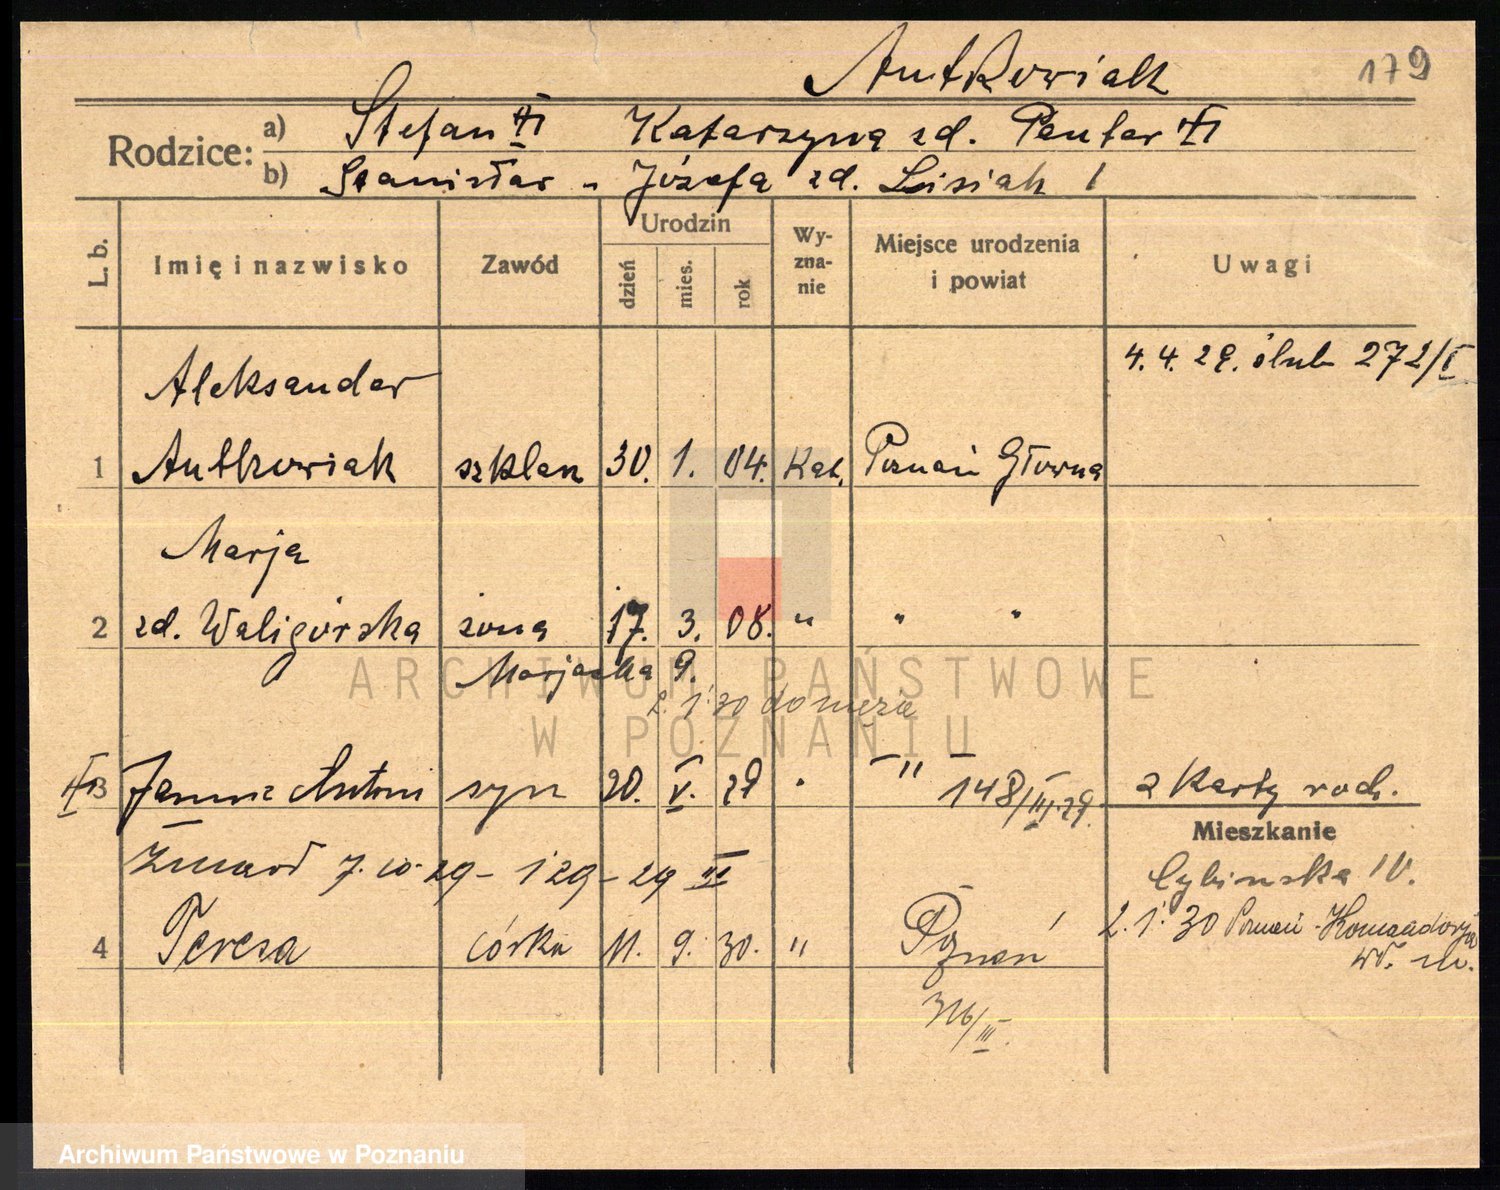 Antkowiak 179
Rodzice: a) Stefan Katarzyna zd. Pentar
b) Stanisław - Józefa zd. Lisiak
L. b. Imię i nazwisko Zawód Urodzin dzień mies. rok Wy-zna-nie Miejsce urodzenia i powiat Uwagi
4. 4. 29. ślub 272/I
Aleksander
1 Antkowiak szklarz 30. 1. 04. Kat. Poznań Główna
Marja
2 zd. Waligórska żona 17. 3. 08. " " "
9.
2. 1. 30 do męża
3 Antoni syn 20. V. 29 " "
148/III.29.
z karty rodz.
Mieszkanie
Zmarł 7.10.29 - 129-29 III
Cybińska 10.
2. 1. 30 Poznań Komandorja
4 Teresa córka 11. 9. 30. " Poznań
316/III.
ARCHIWUM PAŃSTWOWE
W POZNANIU
Archiwum Państwowe w Poznaniu